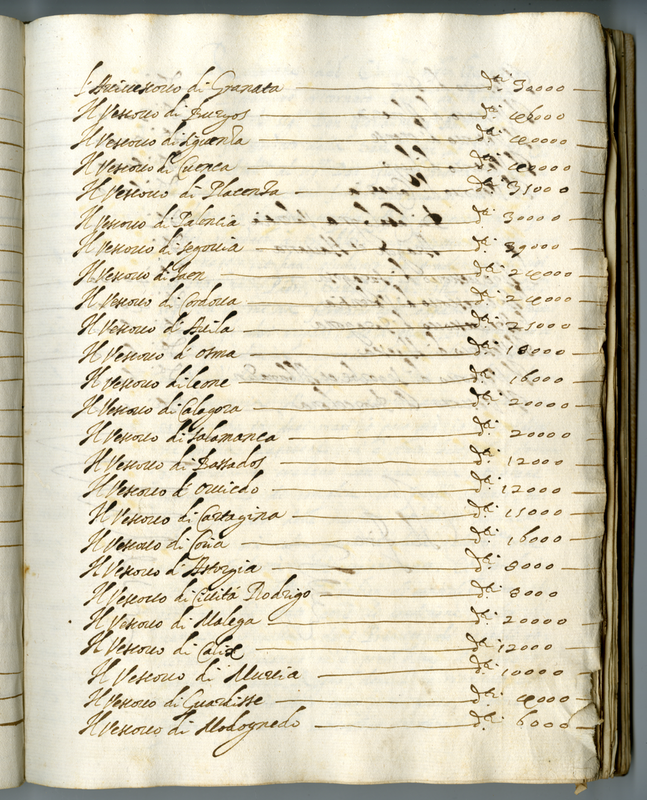 L'Arcivescovo di Granata d.ti 30000
Il Vescovo di Burgos d.ti 40000
Il Vescovo di Siguenza d.ti 40000
Il Vescovo di Cuenca d.ti 40000
Il Vescovo di Placenza d.ti 35000
Il Vescovo di Palencia d.ti 30000
Il Vescovo di Segovia d.ti
Il Vescovo di Jaen d.ti 24000
Il Vescovo di Cordova d.ti 24000
Il Vescovo d'Avila d.ti 25000
Il Vescovo d'Osma d.ti 18000
Il Vescovo di Leone d.ti 16000
Il Vescovo di Calagora d.ti 20000
Il Vescovo di Salamanca d.ti 20000
Il Vescovo di Bassados d.ti 12000
Il Vescovo d'Oviedo d.ti 12000
Il Vescovo di Cartagina d.ti 15000
Il Vescovo di Coria d.ti 16000
Il Vescovo d'Astorgia d.ti 8000
Il Vescovo di Civita Rodrigo d.ti 8000
Il Vescovo di Malega d.ti 20000
Il Vescovo di Calix d.ti 12000
Il Vescovo di Murcia d.ti 10000
Il Vescovo di Guardisse d.ti 4000
Il Vescovo di Modognedo d.ti 6000